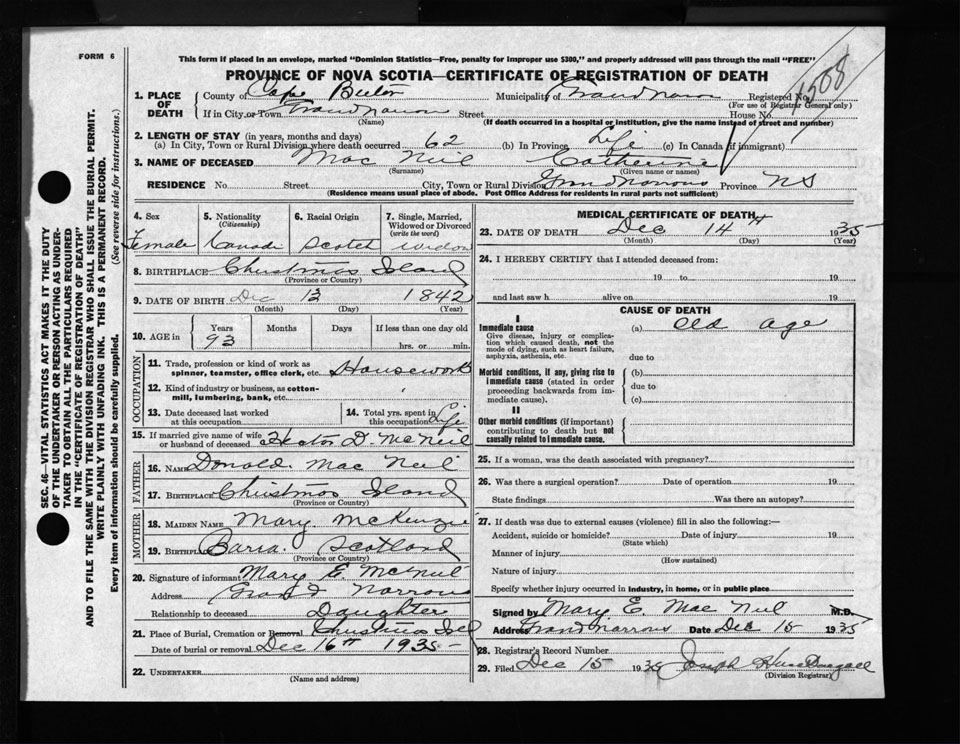 FORM 6
This form if placed in an envelope, marked "Dominion Statistics—Free, penalty for improper use $300," and properly addressed will pass through the mail "FREE"
PROVINCE OF NOVA SCOTIA—CERTIFICATE OF REGISTRATION OF DEATH
1508
1. PLACE OF DEATH
County of Cape Breton Municipality of Grand Narrows Registered No.
(For use of Registrar General only)
If in City or Town Grand Narrows Street House No.
(Name) (If death occurred in a hospital or institution, give the name instead of street and number)
2. LENGTH OF STAY (in years, months and days)
(a) In City, Town or Rural Division where death occurred 62 (b) In Province Life (c) In Canada (if immigrant)
3. NAME OF DECEASED Mac Neil Catherine
(Surname) (Given name or names)
RESIDENCE No. Street City, Town or Rural Division Grand Narrows Province NS
(Residence means usual place of abode. Post Office Address for residents in rural parts not sufficient)
4. Sex
Female
5. Nationality
(Citizenship)
Canadi
6. Racial Origin
Scotch
7. Single, Married, Widowed or Divorced
(write the word)
widow
8. BIRTHPLACE Christmas Island
(Province or Country)
9. DATE OF BIRTH Dec 13 1842
(Month) (Day) (Year)
10. AGE in Years Months Days If less than one day old
93 hrs. or min.
OCCUPATION
11. Trade, profession or kind of work as spinner, teamster, office clerk, etc. Housework
12. Kind of industry or business, as cotton-mill, lumbering, bank, etc.
13. Date deceased last worked at this occupation
14. Total yrs. spent in this occupation Life
15. If married give name of wife or husband of deceased Hector D. McNeil
FATHER
16. NAME Donald Mac Neil
17. BIRTHPLACE Christmas Island
(Province or Country)
MOTHER
18. MAIDEN NAME Mary McKenzie
19. BIRTHPLACE Barra. Scotland
(Province or Country)
20. Signature of informant Mary E. McNeil
Address Grand Narrows
Relationship to deceased Daughter
21. Place of Burial, Cremation or Removal Christmas Isl
Date of burial or removal Dec 16th 1935
22. UNDERTAKER
(Name and address)
MEDICAL CERTIFICATE OF DEATH
23. DATE OF DEATH Dec 14th 1935
(Month) (Day) (Year)
24. I HEREBY CERTIFY that I attended deceased from:
19 to 19
and last saw h alive on 19
CAUSE OF DEATH
I
Immediate cause
Give disease, injury or complication which caused death, not the mode of dying, such as heart failure, asphyxia, asthenia, etc.
(a) Old age
due to
Morbid conditions, if any, giving rise to immediate cause (stated in order proceeding backwards from immediate cause).
(b)
due to
(c)
II
Other morbid conditions (if important) contributing to death but not causally related to immediate cause.
25. If a woman, was the death associated with pregnancy?
26. Was there a surgical operation? Date of operation 19
State findings Was there an autopsy?
27. If death was due to external causes (violence) fill in also the following:—
Accident, suicide or homicide? Date of injury 19
(State which)
Manner of injury
(How sustained)
Nature of injury
Specify whether injury occurred in industry, in home, or in public place
Signed by Mary E. Mac Neil M.D.
Address Grand Narrows Date Dec 15 1935
28. Registrar's Record Number
29. Filed Dec 15 1935 Joseph
(Division Registrar)
SEC. 46—VITAL STATISTICS ACT MAKES IT THE DUTY
OF THE UNDERTAKER OR PERSON ACTING AS UNDER-
TAKER TO OBTAIN ALL THE PARTICULARS REQUIRED
IN THE "CERTIFICATE OF REGISTRATION OF DEATH"
AND TO FILE THE SAME WITH THE DIVISION REGISTRAR WHO SHALL ISSUE THE BURIAL PERMIT.
WRITE PLAINLY WITH UNFADING INK. THIS IS A PERMANENT RECORD.
Every item of information should be carefully supplied. (See reverse side for instructions.)